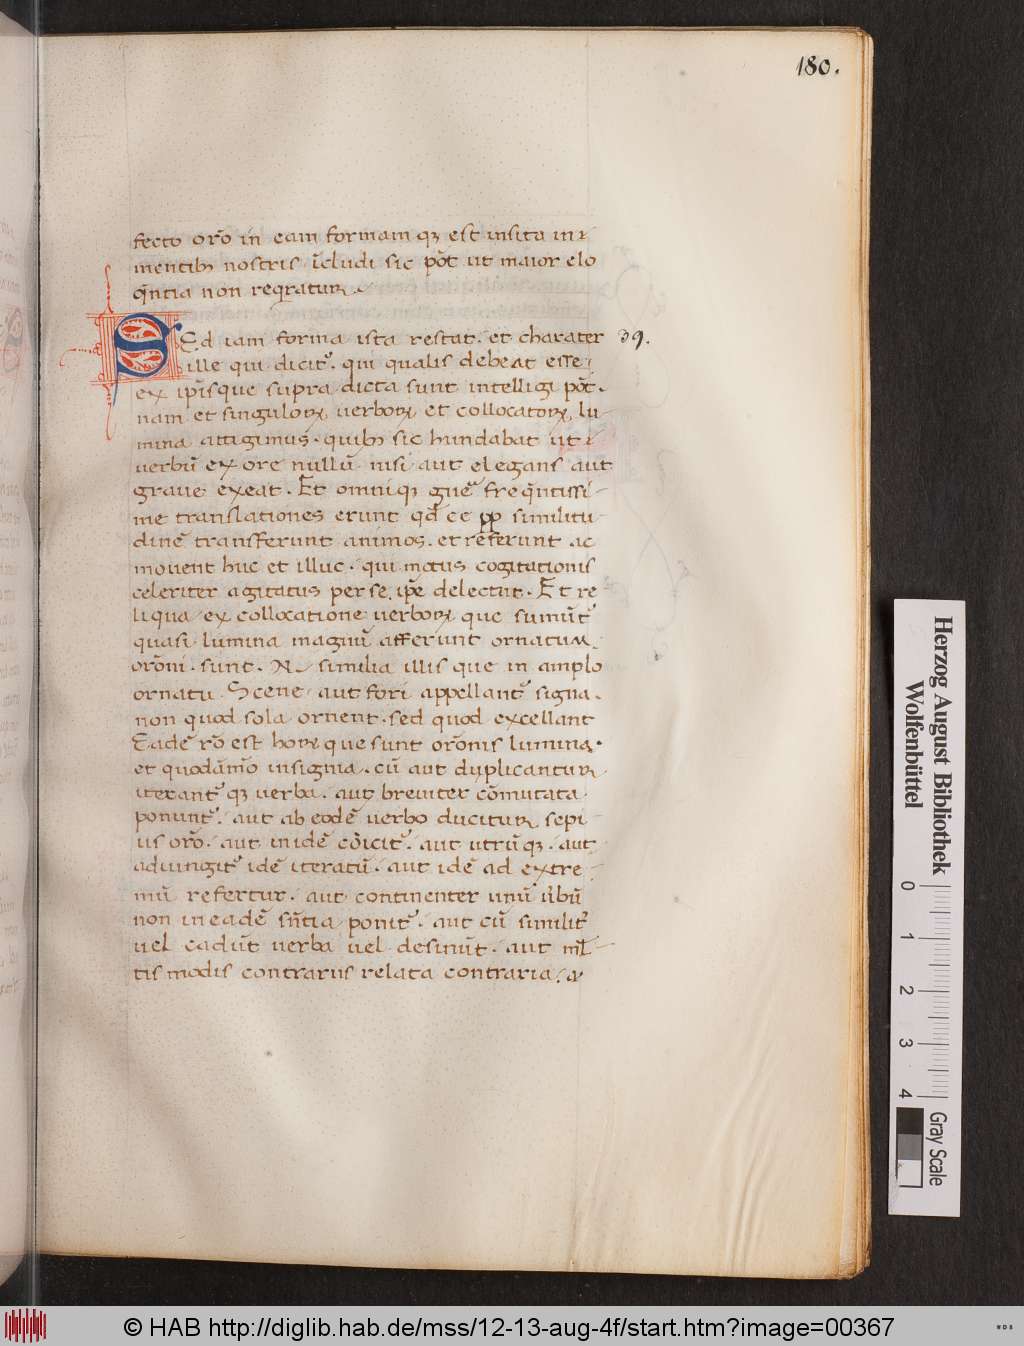 180.
fecto orō in eam formam qȝ est insita in
mentibꝫ nostris īcludi sic pōt ut maior elo
q̄ntia non reqratur.
SEd iam forma ista restat. et charater 39.
ille qui dicit᷑. qui qualis debeat esse
ex ip̄isque supra dicta sunt intelligi pōt.
nam et singuloꝝ uerboꝝ et collocatoꝝ lu
mina attigimus. quibꝫ sic hundabat ut
uerbū ex ore nullū nisi aut elegans aut
graue exeat. Et omniqȝ gn̄e freq̄ntissi-
me translationes erunt qd̄ ee ꝓp similitu
dinē transferunt animos. et referunt ac
mouent huc et illuc. qui motus cogitationis
celeriter agitatus per se. ip̄e delectat. Et re
liqua ex collocatione uerboꝝ que sumūt᷑
quasi lumina magnū afferunt ornatum
orōni. sunt. N similia illis que in amplo
ornatu Scene aut fori appellant᷑ signa.
non quod sola ornent. sed quod excellant
Eadē rō est horꝝ que sunt orōnis lumina.
et quodāmō insignia. cū aut duplicantur
iterant᷑ qȝ uerba. aut breuiter cōmutata
ponunt᷑. aut ab eodē uerbo ducitur sepi
us orō. aut in idē cōicit᷑. aut utrūqȝ. aut
adiungit᷑ idē iteratū. aut idē ad extre
mū refertur. aut continenter unū ūbū
non in eadē sn̄tia ponit᷑. aut cū similit᷑
uel cadūt uerba uel desinūt. aut ml̄
tis modis contrariis relata contraria.
Herzog August Bibliothek
Wolfenbüttel
0 1 2 3 4
Gray Scale
© HAB http://diglib.hab.de/mss/12-13-aug-4f/start.htm?image=00367